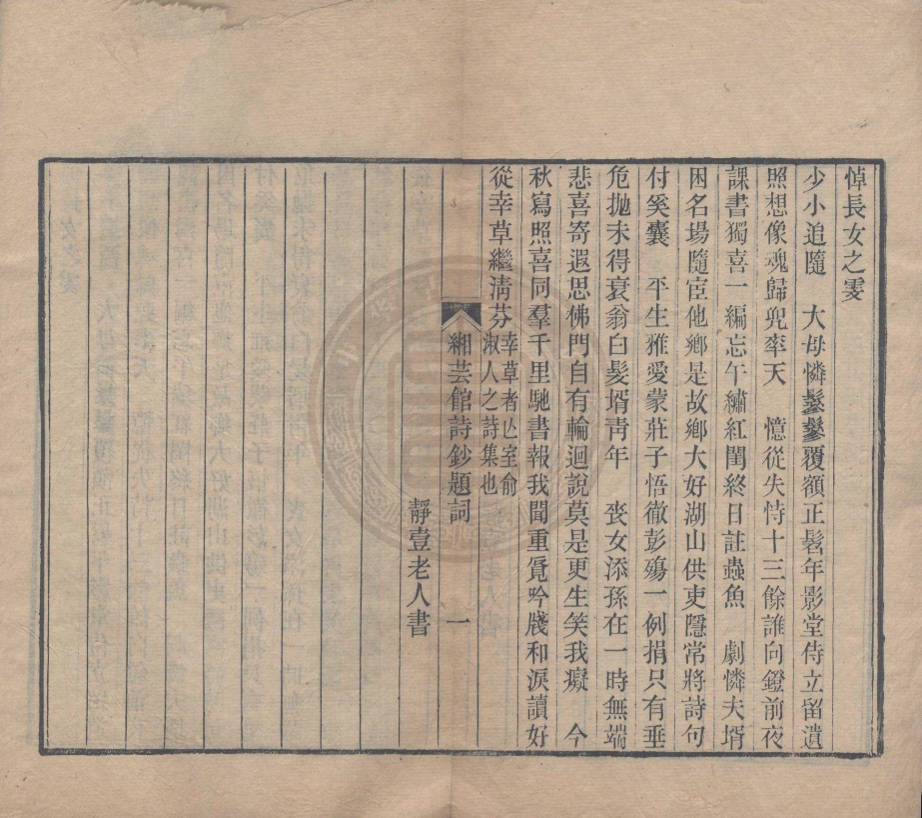 悼長女之雯
少小追隨　大母憐鬖鬖覆額正髫年影堂侍立留遺
照想像魂歸兜率天　憶從失恃十三餘誰向鐙前夜
課書獨喜一編忘午繡紅閨終日註蟲魚　劇憐夫壻
困名場隨宦他鄉是故鄉大好湖山供吏隱常將詩句
付奚囊　平生雅愛蒙莊子悟徹彭殤一例捐只有垂
危拋未得衰翁白髮壻青年　喪女添孫在一時無端
悲喜寄遐思佛門自有輪迴說莫是更生笑我癡　今
秋寫照喜同羣千里馳書報我聞重覓吟牋和淚讀好
從幸草繼淸芬
幸草者亾室俞
淑人之詩集也
緗芸館詩鈔題詞
一
靜壹老人書